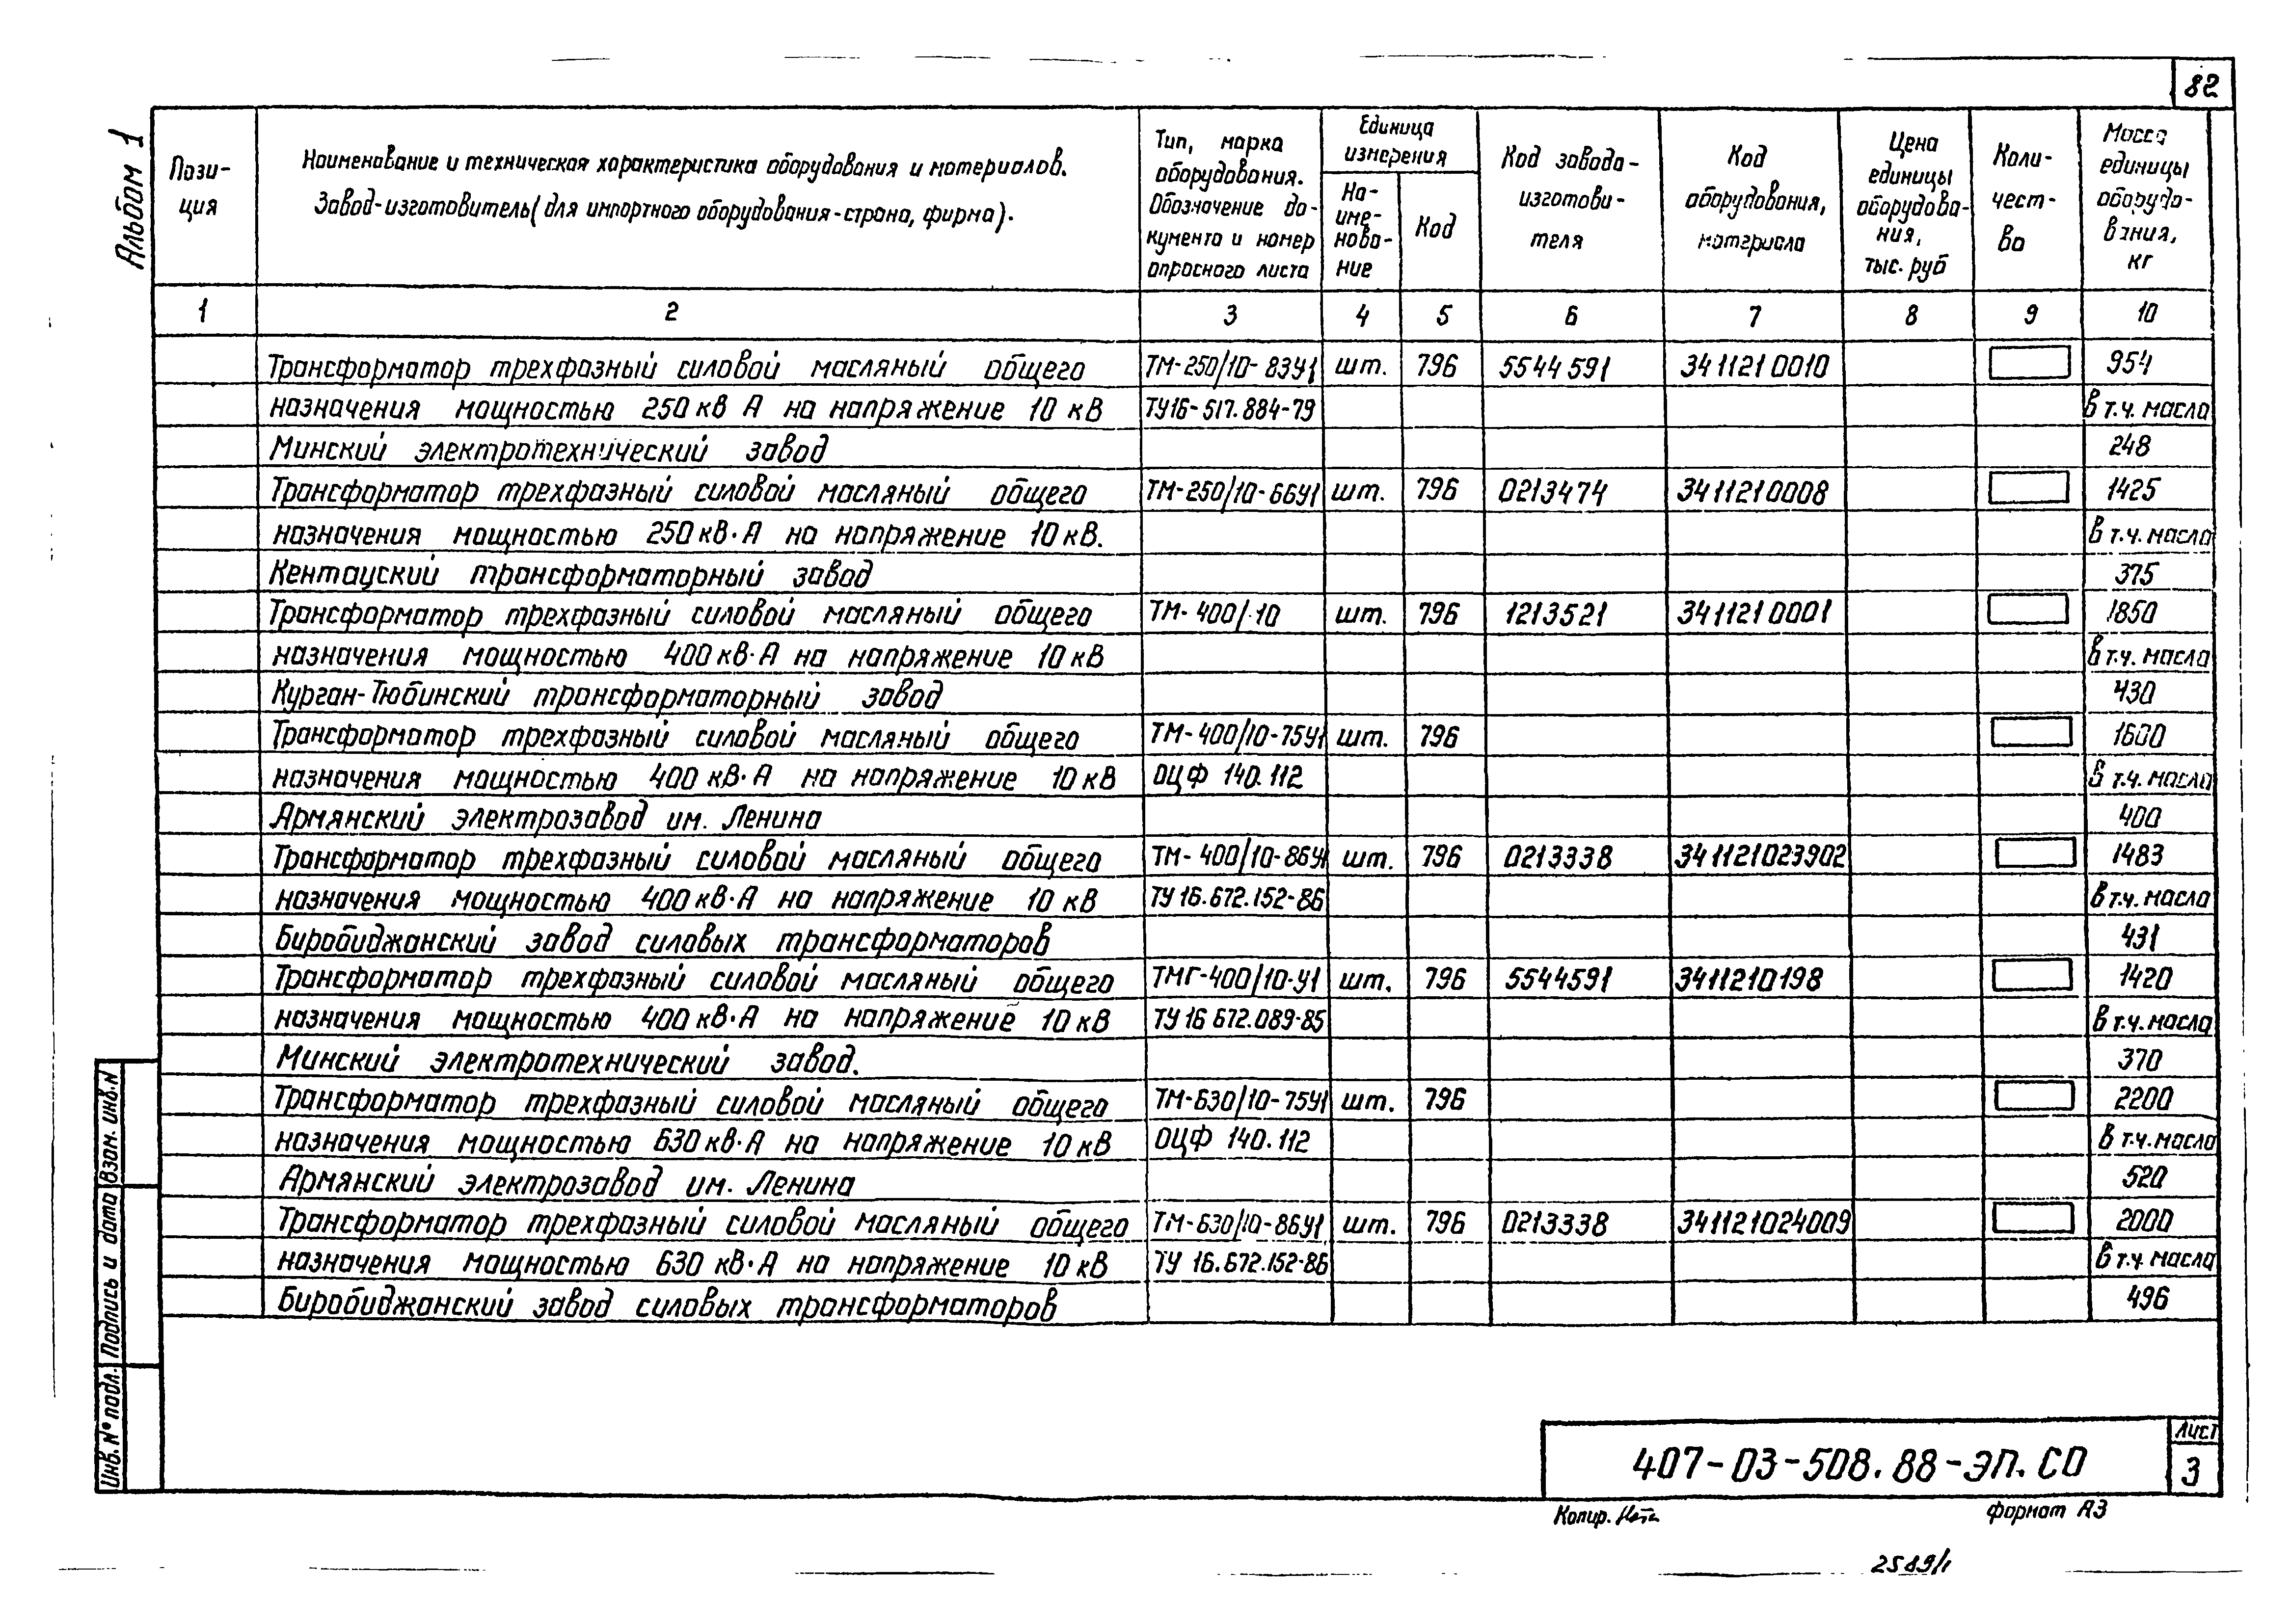 82
Альбом 1
Пози-
ция
Наименование и техническая характеристика оборудования и материалов.
Завод-изготовитель (для импортного оборудования-страна, фирма).
Тип, марка
оборудования.
Обозначение до-
кумента и номер
опросного листа
Единица
измерения
На-
име-
нова-
ние
Код
Код завода-
изготови-
теля
Код
оборудования,
материала
Цена
единицы
оборудова-
ния,
тыс. руб
Коли-
чест-
во
Масса
единицы
оборудо-
вания,
кг
1 2 3 4 5 6 7 8 9 10
Трансформатор трехфазный силовой масляный общего ТМ-250/10-83У1 шт. 796 5544591 3411210010 954
назначения мощностью 250 кВ А на напряжение 10 кВ ТУ16-517.884-79 в т.ч. масла
Минский электротехнический завод 248
Трансформатор трехфазный силовой масляный общего ТМ-250/10-66У1 шт. 796 0213474 3411210008 1425
назначения мощностью 250 кВ·А на напряжение 10 кВ. в т.ч. масла
Кентауский трансформаторный завод 375
Трансформатор трехфазный силовой масляный общего ТМ-400/10 шт. 796 1213521 3411210001 1850
назначения мощностью 400 кВ·А на напряжение 10 кВ в т.ч. масла
Курган-Тюбинский трансформаторный завод 430
Трансформатор трехфазный силовой масляный общего ТМ-400/10-75У1 шт. 796 1600
назначения мощностью 400 кВ·А на напряжение 10 кВ ОЦФ 140.112 в т.ч. масла
Армянский электрозавод им. Ленина 400
Трансформатор трехфазный силовой масляный общего ТМ-400/10-86У1 шт. 796 0213338 341121023902 1483
назначения мощностью 400 кВ·А на напряжение 10 кВ ТУ 16.672.152-86 в т.ч. масла
Биробиджанский завод силовых трансформаторов 431
Трансформатор трехфазный силовой масляный общего ТМГ-400/10-У1 шт. 796 5544591 3411210198 1420
назначения мощностью 400 кВ·А на напряжение 10 кВ ТУ 16 672.089-85 в т.ч. масла
Минский электротехнический завод. 370
Трансформатор трехфазный силовой масляный общего ТМ-630/10-75У1 шт. 796 2200
назначения мощностью 630 кВ·А на напряжение 10 кВ ОЦФ 140.112 в т.ч. масла
Армянский электрозавод им. Ленина 520
Трансформатор трехфазный силовой масляный общего ТМ-630/10-86У1 шт. 796 0213338 341121024009 2000
назначения мощностью 630 кВ·А на напряжение 10 кВ ТУ 16.672.152-86 в т.ч. масла
Биробиджанский завод силовых трансформаторов 496
Взам. инв. N
Подпись и дата
Инв. N° подл.
407-03-508.88-ЭП.СО
Лист
3
Копир.
формат А3
2589/1